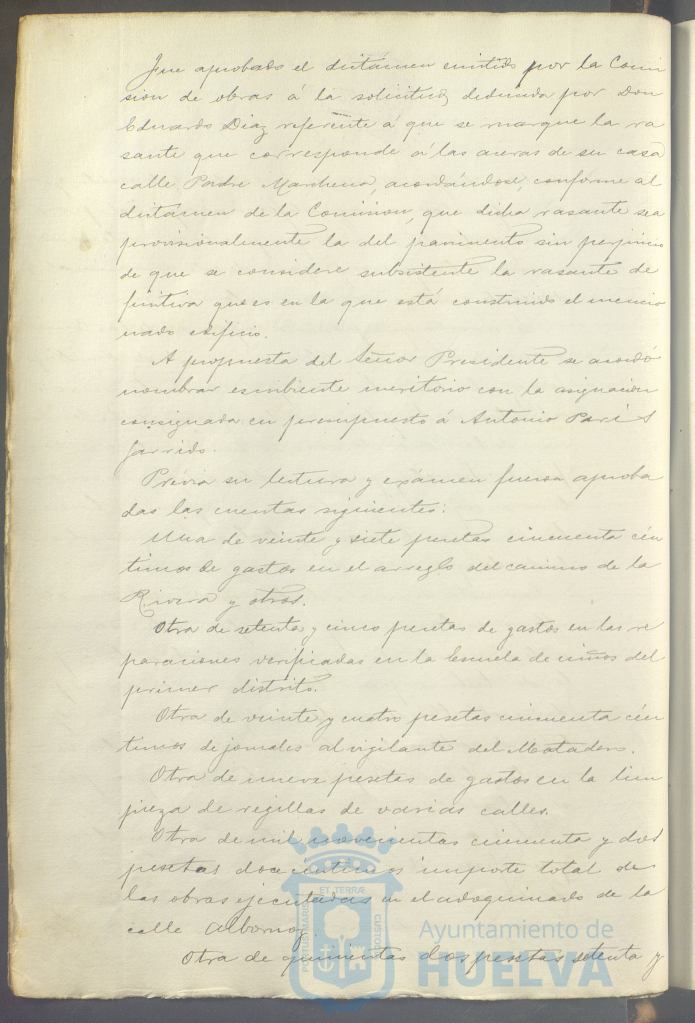 Fue aprobado el dictámen emitido por la Comi
sion de obras á la solicitud deducida por Don
Eduardo Diaz referente á que se marque la ra
sante que corresponde á las aceras de su casa
calle Padre Marchena, acordándose, conforme al
dictámen de la Comision, que dicha rasante sea
provisionalmente la del pavimento sin perjuicio
de que se considere subsistente la rasante de
finitiva que es en la que está construido el mencio
nado edificio.
A propuesta del Señor Presidente se acordó
nombrar escribiente meritorio con la asignacion
consignada en presupuesto á Antonio
Garrido.
Prévia su lectura y exámen fueron aproba
das las cuentas siguientes:
Una de veinte y siete pesetas cincuenta cén
timos de gastos en el arreglo del camino de la
Rivera y otros.
Otra de setenta y cinco pesetas de gastos en las re
paraciones verificadas en la Escuela de niños del
primer distrito.
Otra de veinte y cuatro pesetas cincuenta cén
timos de jornales al vigilante del Matadero.
Otra de nueve pesetas de gastos en la lim
pieza de regillas de varias calles.
Otra de mil novecientas cincuenta y dos
pesetas doce céntimos importe total de
las obras ejecutadas en el adoquinado de la
calle Albornoz
Otra de quinientas dos pesetas setenta y
PORTUS MARIS ET TERRÆ CUSTODIA
Ayuntamiento de
HUELVA